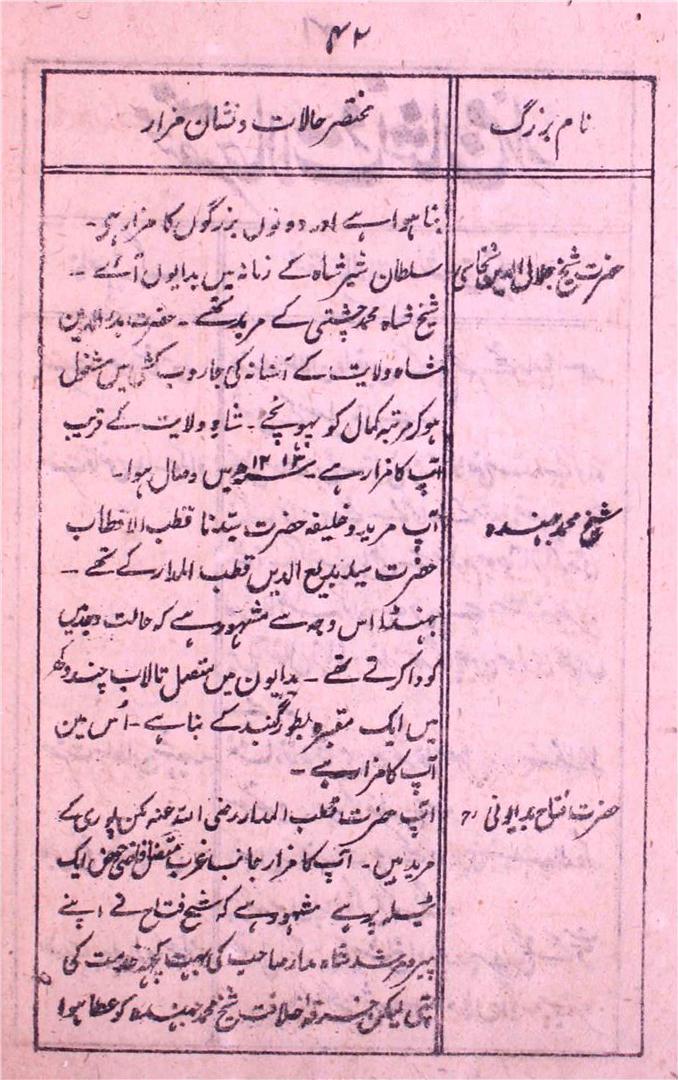 ۴۲
نام بزرگ
مختصر حالات و نشان مزار
بنا ہوا ہے اور دونوں بزرگوں کا مزار ہے۔
حضرت شیخ جلال الدین بخاری
سلطان شیر شاہ کے زمانہ میں بدایوں آئے۔
شیخ شاہ محمد چشتی کے مرید تھے۔ حضرت بدرالدین
شاہ ولایت کے آستانہ کی جاروب کشی میں مشغول
ہو کر مرتبہ کمال کو پہونچے۔ شاہ ولایت کے قریب
آپ کا مزار ہے۔ میں وصال ہوا۔
شیخ محمد جہندہ
آپ مرید و خلیفہ حضرت سیدنا قطب الاقطاب
حضرت سید بدیع الدین قطب المدار کے تھے۔
جہنڈا اس وجہ سے مشہور ہے کہ حالت وجد میں
کودا کرتے تھے۔ بدایون میں متصل تالاب چندوکھر
میں ایک مقبرہ بطور گنبد کے بنا ہے۔ اُس مین
آپ کا مزار ہے۔
حضرت فتاح بدایونی رح
آپ حضرت قطب المدار رضی اللہ عنہ مکن پوری کے
مرید ہیں۔ آپ کا مزار جانب غرب متصل قاضی حوض ایک
ٹیلہ پر ہے مشہور ہے کہ شیخ فتاح نے اپنے
پیر و مرشد شاہ مدار صاحب کی بہت کچھ خدمت کی
تہی لیکن خرقہ خلافت شیخ محمد جہندہ کو عطا ہوا